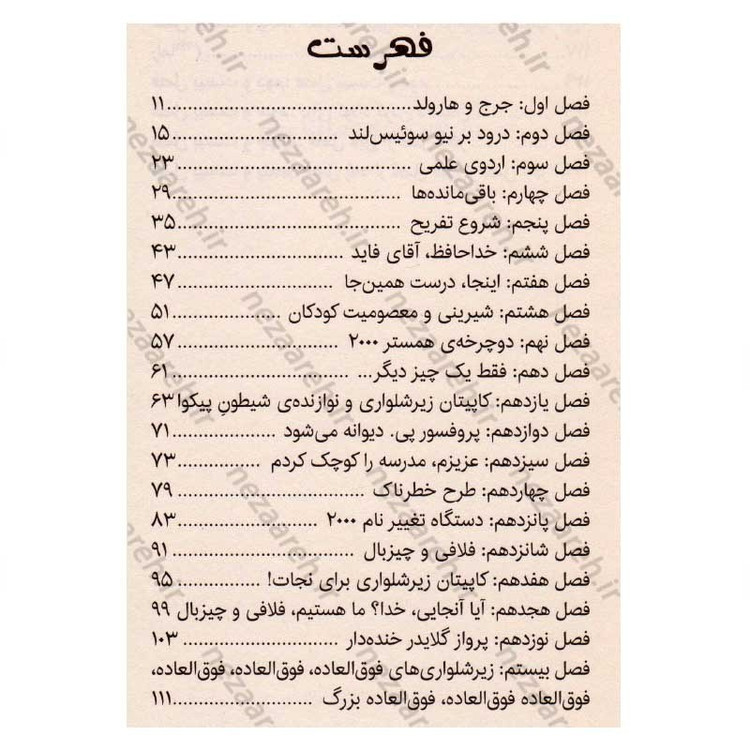 فهرست
فصل اول: جرج و هارولد..........................................۱۱
فصل دوم: درود بر نیو سوئیس‌لند .............................۱۵
فصل سوم: اردوی علمی .........................................۲۳
فصل چهارم: باقی‌مانده‌ها .......................................۲۹
فصل پنجم: شروع تفریح .......................................۳۵
فصل ششم: خداحافظ، آقای فاید .............................۴۳
فصل هفتم: اینجا، درست همین‌جا ...........................۴۷
فصل هشتم: شیرینی و معصومیت کودکان ....................۵۱
فصل نهم: دوچرخه‌ی همستر ۲۰۰۰ ...........................۵۷
فصل دهم: فقط یک چیز دیگر... ..............................۶۱
فصل یازدهم: کاپیتان زیرشلواری و نوازنده‌ی شیطونِ پیکوا ۶۳
فصل دوازدهم: پروفسور پی. دیوانه می‌شود ....................۷۱
فصل سیزدهم: عزیزم، مدرسه را کوچک کردم ................۷۳
فصل چهاردهم: طرح خطرناک ................................۷۹
فصل پانزدهم: دستگاه تغییر نام ۲۰۰۰ ........................۸۳
فصل شانزدهم: فلافی و چیزبال ...............................۹۱
فصل هفدهم: کاپیتان زیرشلواری برای نجات! ................۹۵
فصل هجدهم: آیا آنجایی، خدا؟ ما هستیم، فلافی و چیزبال ۹۹
فصل نوزدهم: پرواز گلایدر خنده‌دار ........................۱۰۳
فصل بیستم: زیرشلواری‌های فوق‌العاده، فوق‌العاده، فوق‌العاده،
فوق‌العاده فوق‌العاده، فوق‌العاده بزرگ ........................۱۱۱
nezaareh.ir